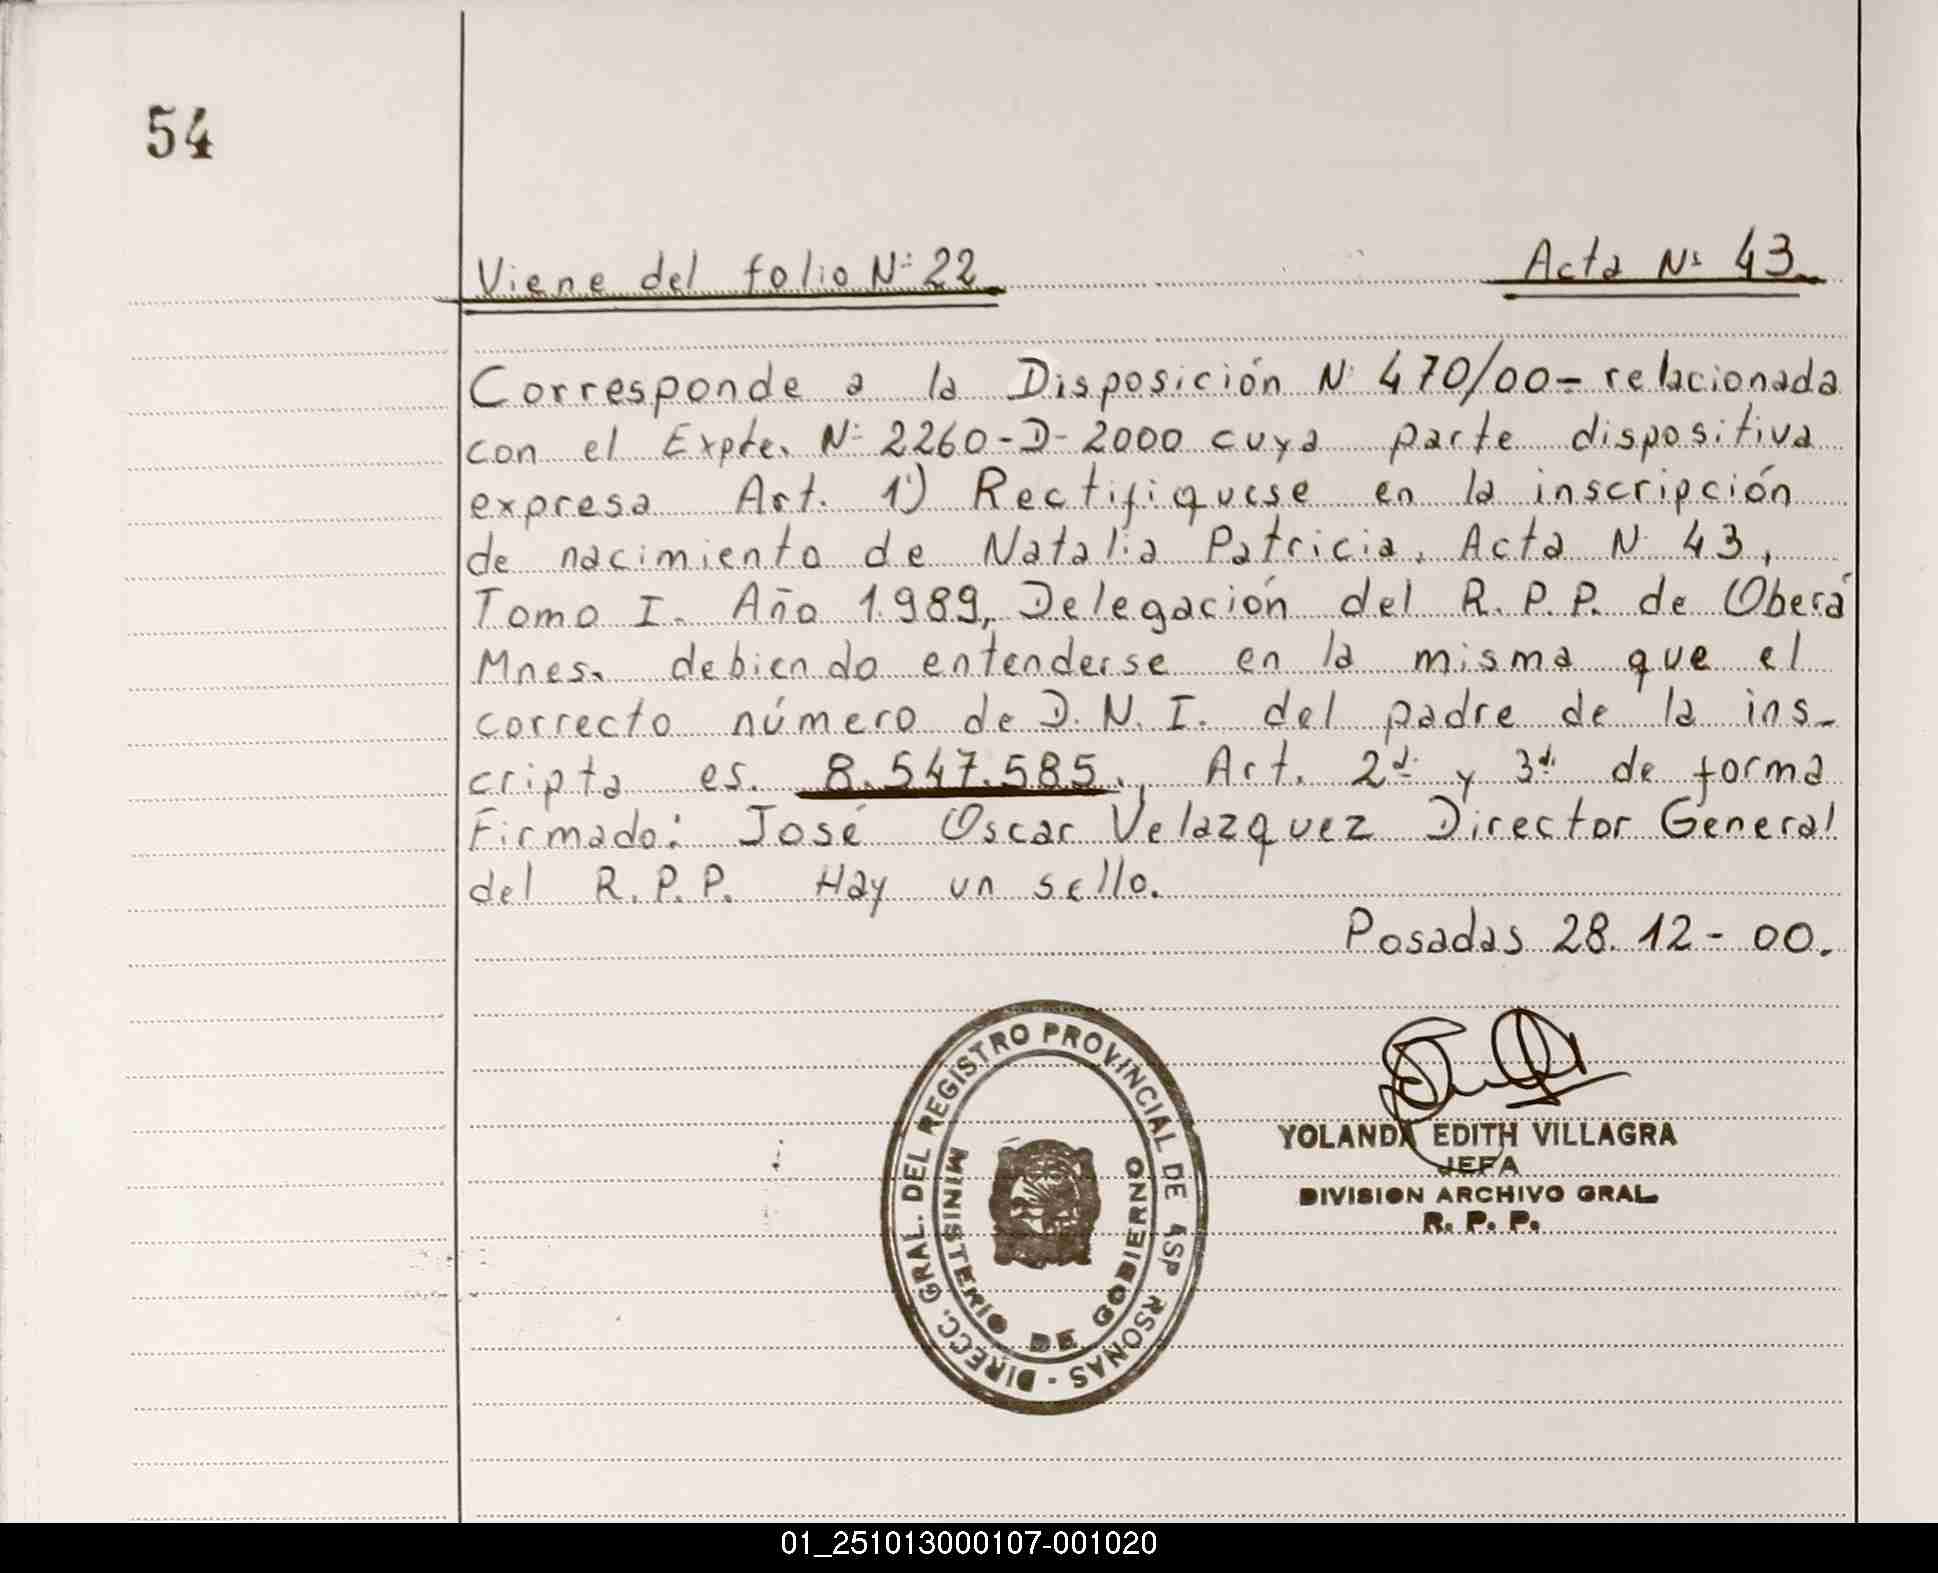 54
Viene del folio Nº 22
Acta Nº 43
Corresponde a la Disposición Nº 470/00- relacionada
con el Expte. Nº 2260-D-2000 cuya parte dispositiva
expresa Art. 1º) Rectifiquese en la inscripción
de nacimiento de Natalia Patricia. Acta Nº 43,
Tomo I. Año 1.989, Delegación del R.P.P. de Oberá
Mnes. debiendo entenderse en la misma que el
correcto número de D.N.I. del padre de la ins-
cripta es. 8.547.585. Art. 2º y 3º de forma
Firmado: José Oscar Velazquez Director General
del R.P.P. Hay un sello.
Posadas 28.12-00.
DIRECC. GRAL. DEL REGISTRO PROVINCIAL DE ASP RSONAS -
MINISTERIO DE GOBIERNO
YOLANDA EDITH VILLAGRA
JEFA
DIVISION ARCHIVO GRAL.
R. P. P.
01_251013000107-001020